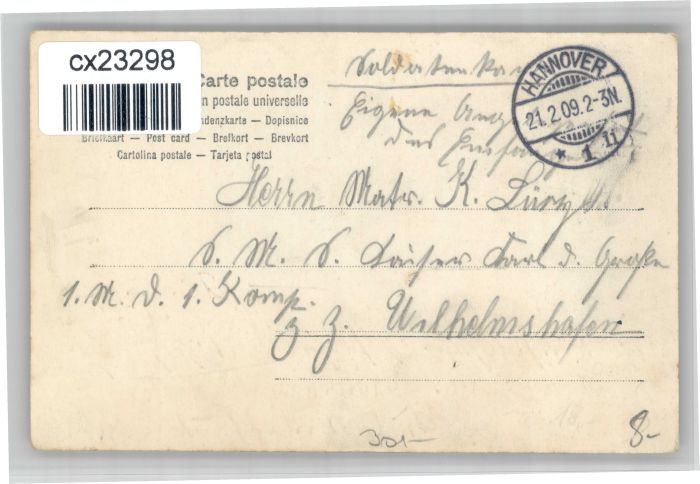 cx23298
Carte postale
n postale universelle
sdenzkarte – Dopisnice
Briefkaart – Post card – Brefkort – Brevkort
Cartolina postale – Tarjeta postal
Soldatenkar
Eigene Ang
des Empfäng
HANNOVER
21.2.09.2-3N.
* 1 11
Herrn Matr. K.
S. M. S. Kaiser Karl d. Große
1. M. D. 1. Komp.
z. Z. Wilhelmshafen
301-
8-